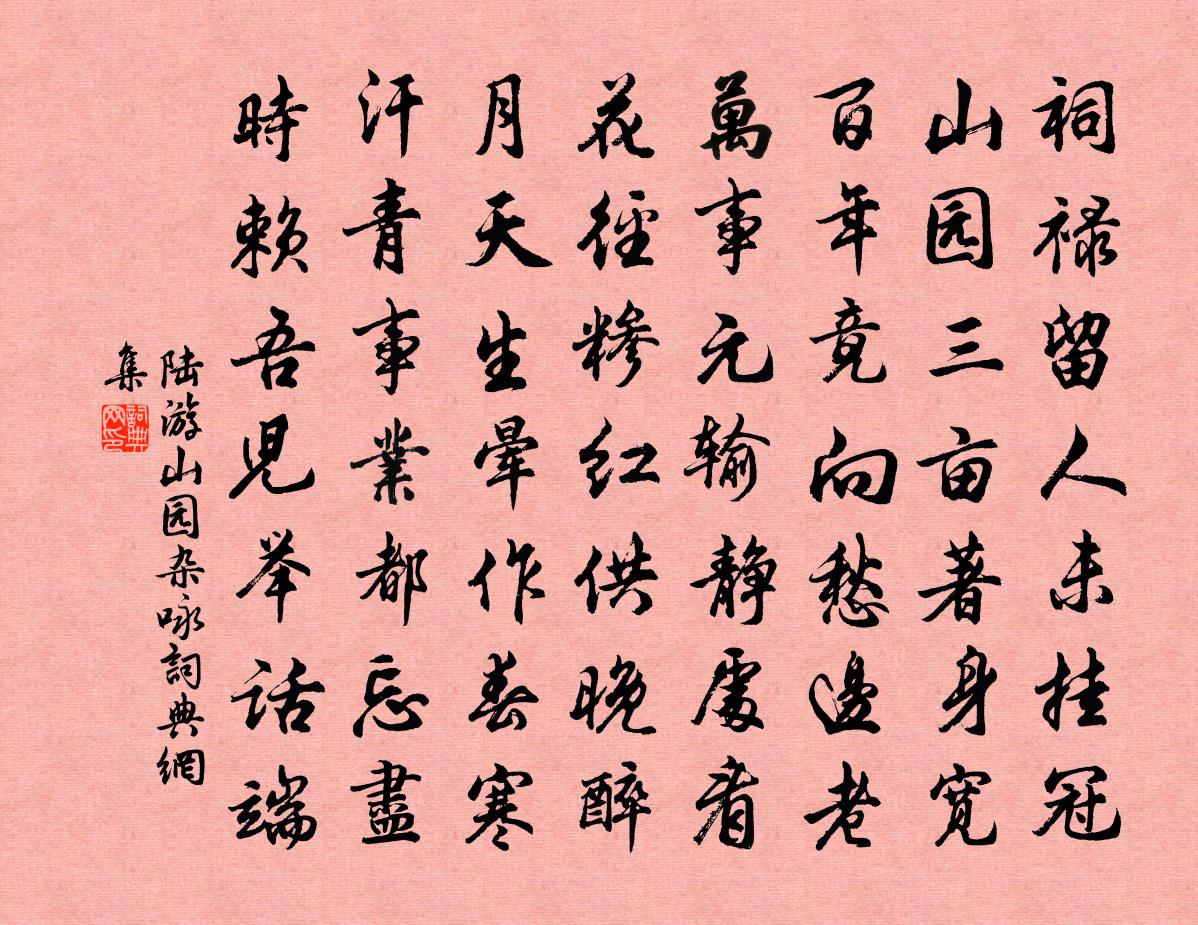 祠禄留人未挂冠
山园三亩著身宽
百年竟向愁邊老
萬事元输静處看
花徑糁红供晚醉
月天生暈作春寒
汗青事業都忘盡
時赖吾児举话端
陆游山园杂咏詞典網
集
詞典网印